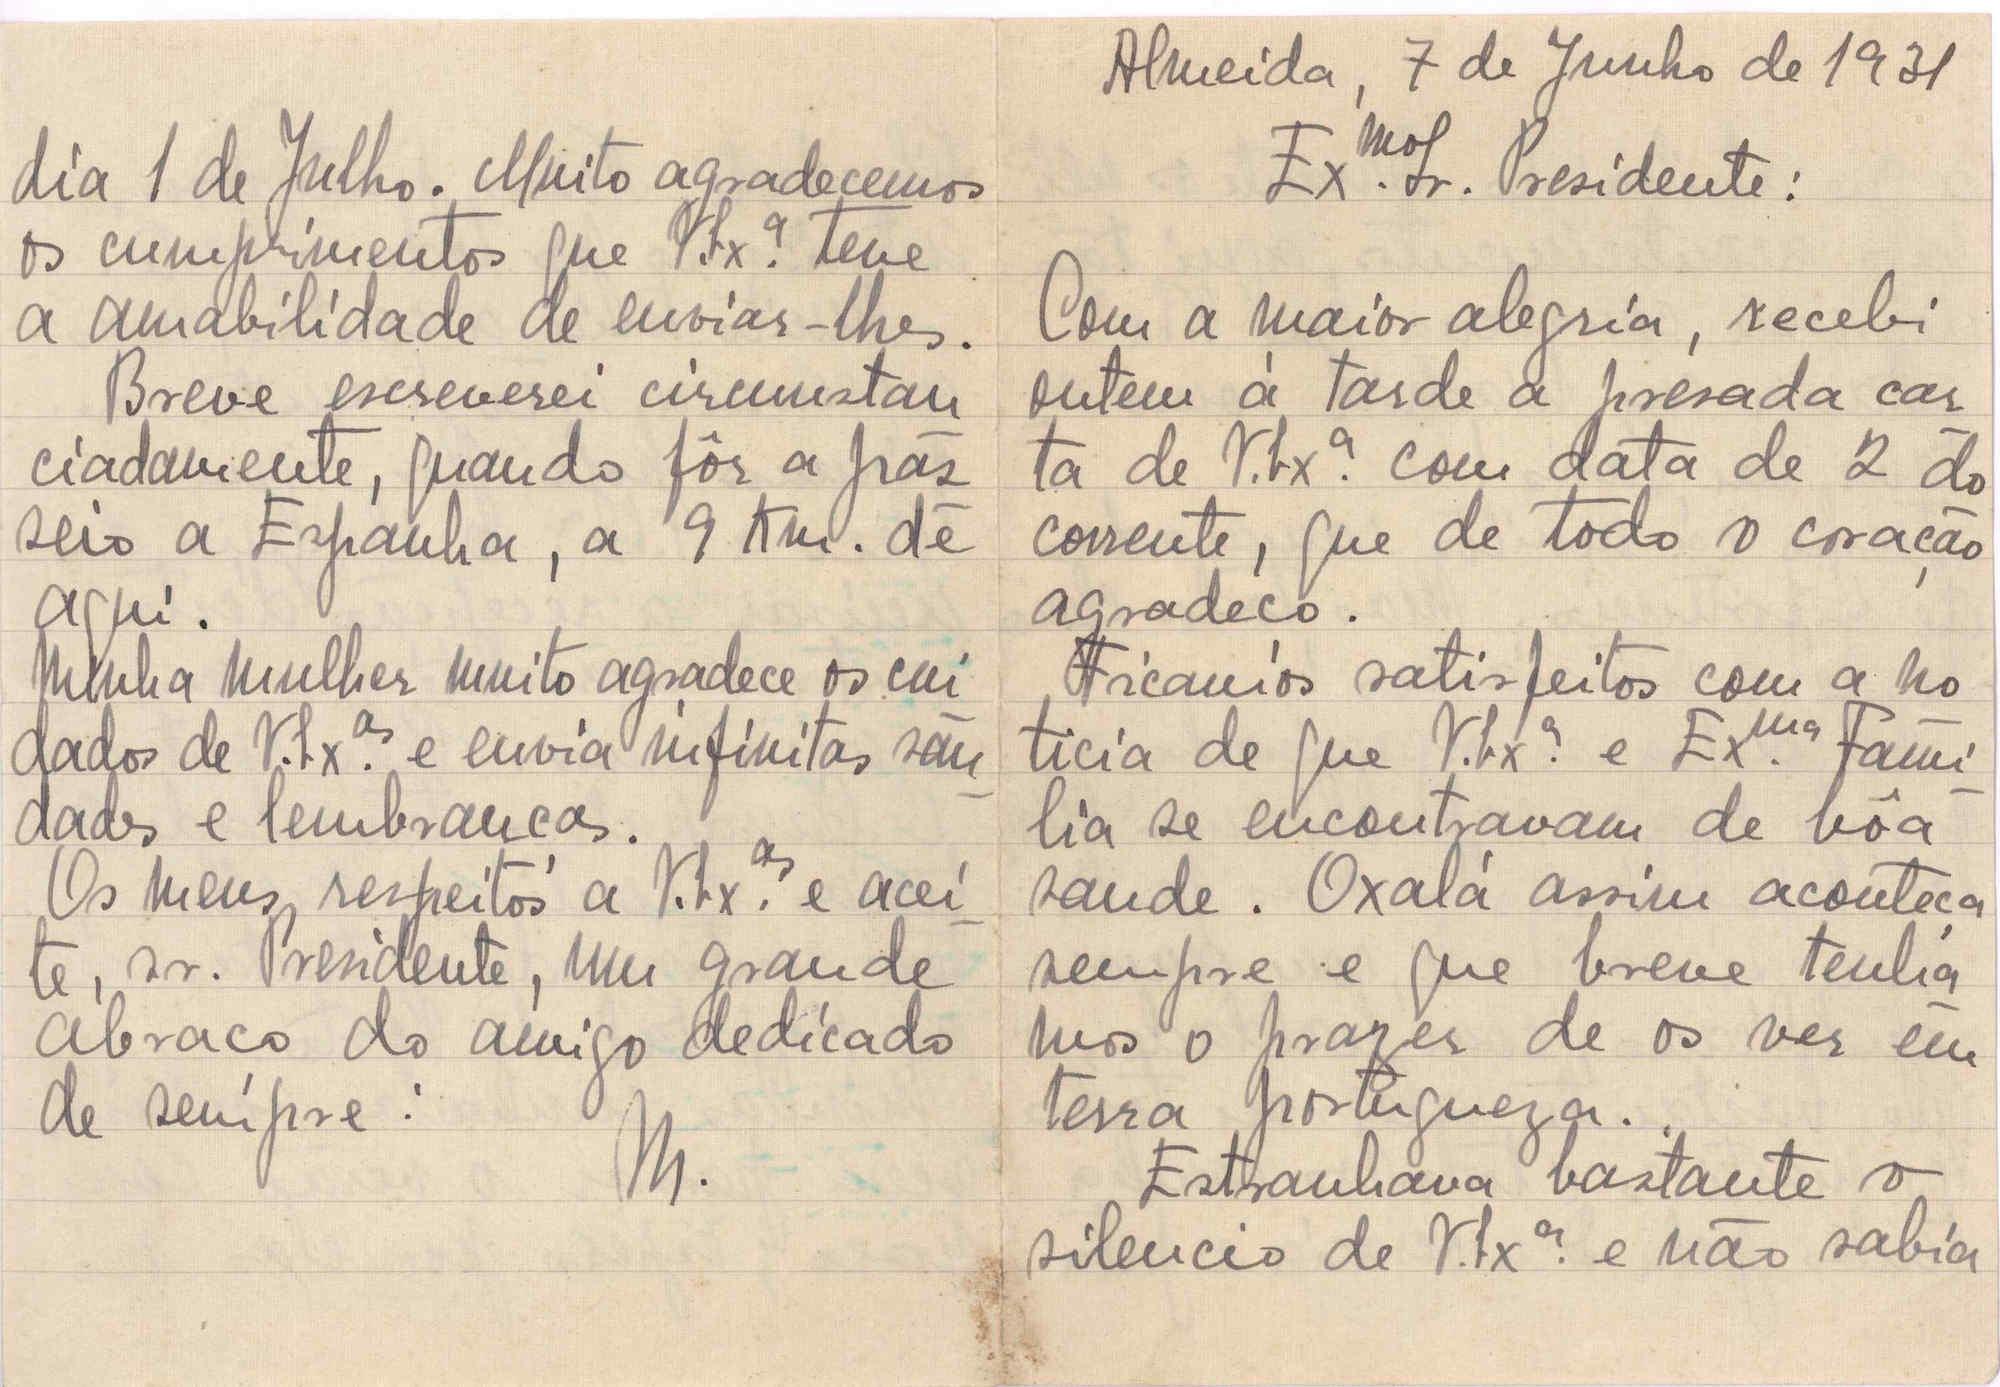 Almeida, 7 de Junho de 1931
Ex.mo Sr. Presidente:
Com a maior alegria, recebi
ontem á tarde a presada car
ta de V.Ex.ª com data de 2 do
corrente, que de todo o coração
agradeço.
Ficamos satisfeitos com a no
ticia de que V.Ex.ª e Ex.ma Fami
lia se encontravam de bôa
saude. Oxalá assim aconteça
sempre e que breve tenha
mos o prazer de os ver em
terra portugueza.
Estranhava bastante o
silencio de V.Ex.ª e não sabia
dia 1 de Julho. Muito agradecemos
os cumprimentos que V.Ex.ª teve
a amabilidade de enviar-lhes.
Breve escreverei circumstan
ciadamente, quando fôr a pas
seio a Espanha, a 9 Km. de
aqui.
Minha mulher muito agradece os cui
dados de V.Ex.as e envia infinitas sau
dades e lembranças.
Os meus respeitos a V.Ex.as e acei
te, sr. Presidente, um grande
abraço do amigo dedicado
de sempre:
M.